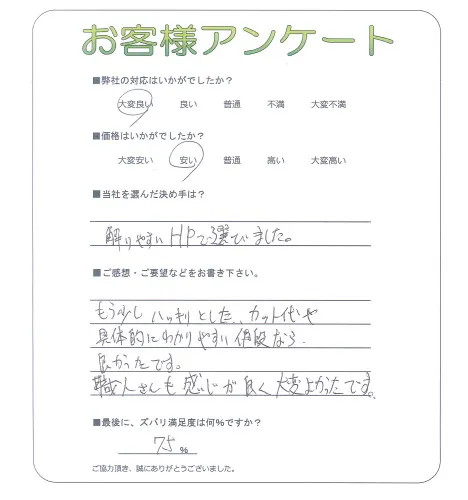 お客様アンケート
■弊社の対応はいかがでしたか?
大変良い 良い 普通 不満 大変不満
■価格はいかがでしたか?
大変安い 安い 普通 高い 大変高い
■当社を選んだ決め手は?
解りやすいHPで選びました。
■ご感想・ご要望などをお書き下さい。
もう少しハッキリとした、カット代や
具体的にわかりやすい値段なら
良かったです。
職人さんも感じが良く大変よかったです。
■最後に、ズバリ満足度は何%ですか?
75 %
ご協力頂き、誠にありがとうございました。